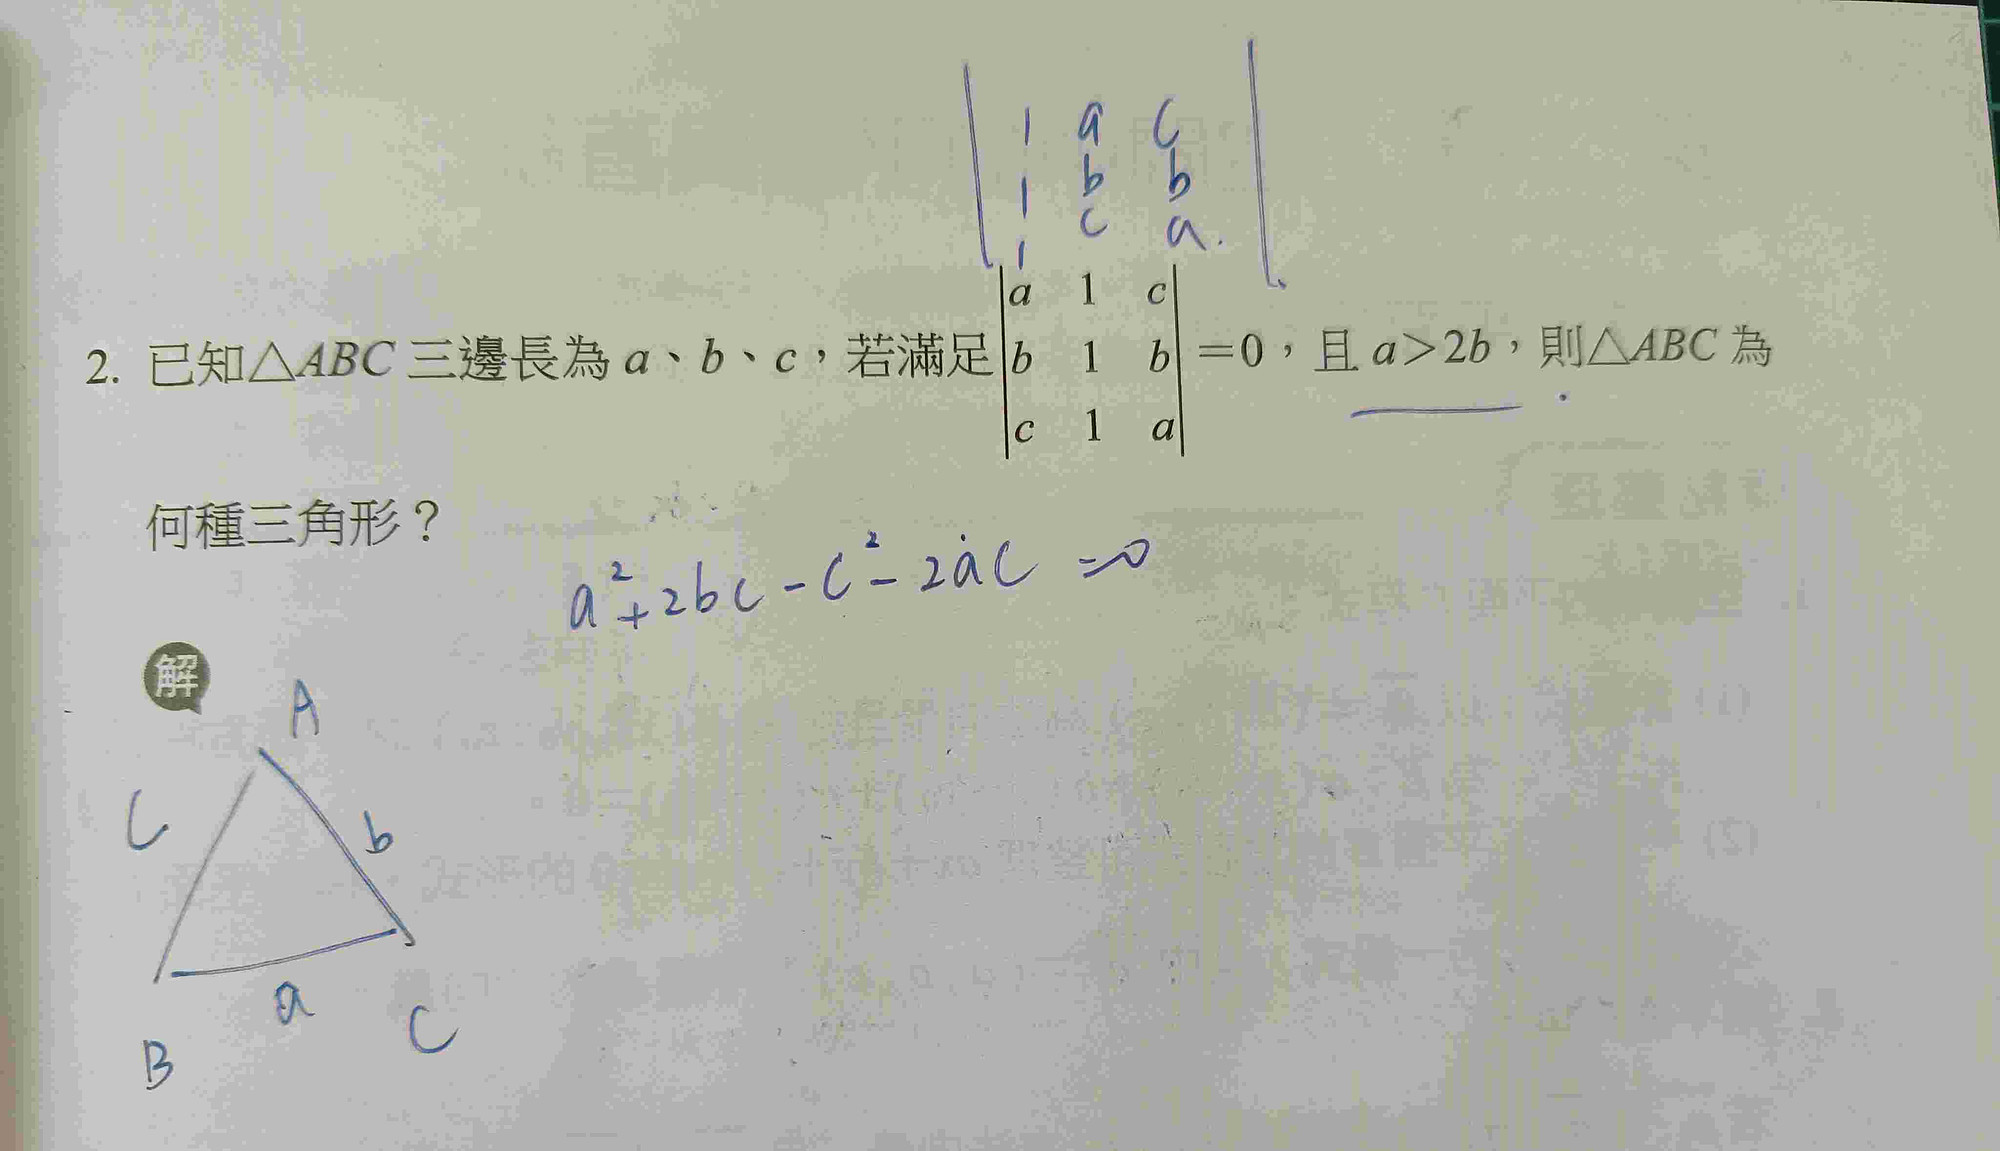 1 a c
1 b b
1 c a.
2. 已知△ABC 三邊長為 a、b、c，若滿足 |a 1 c| =0，且 a>2b，則△ABC 為
|b 1 b|
|c 1 a|
何種三角形？
a²+2bc-c²-2ac=0
解
A
c
b
a
B
C